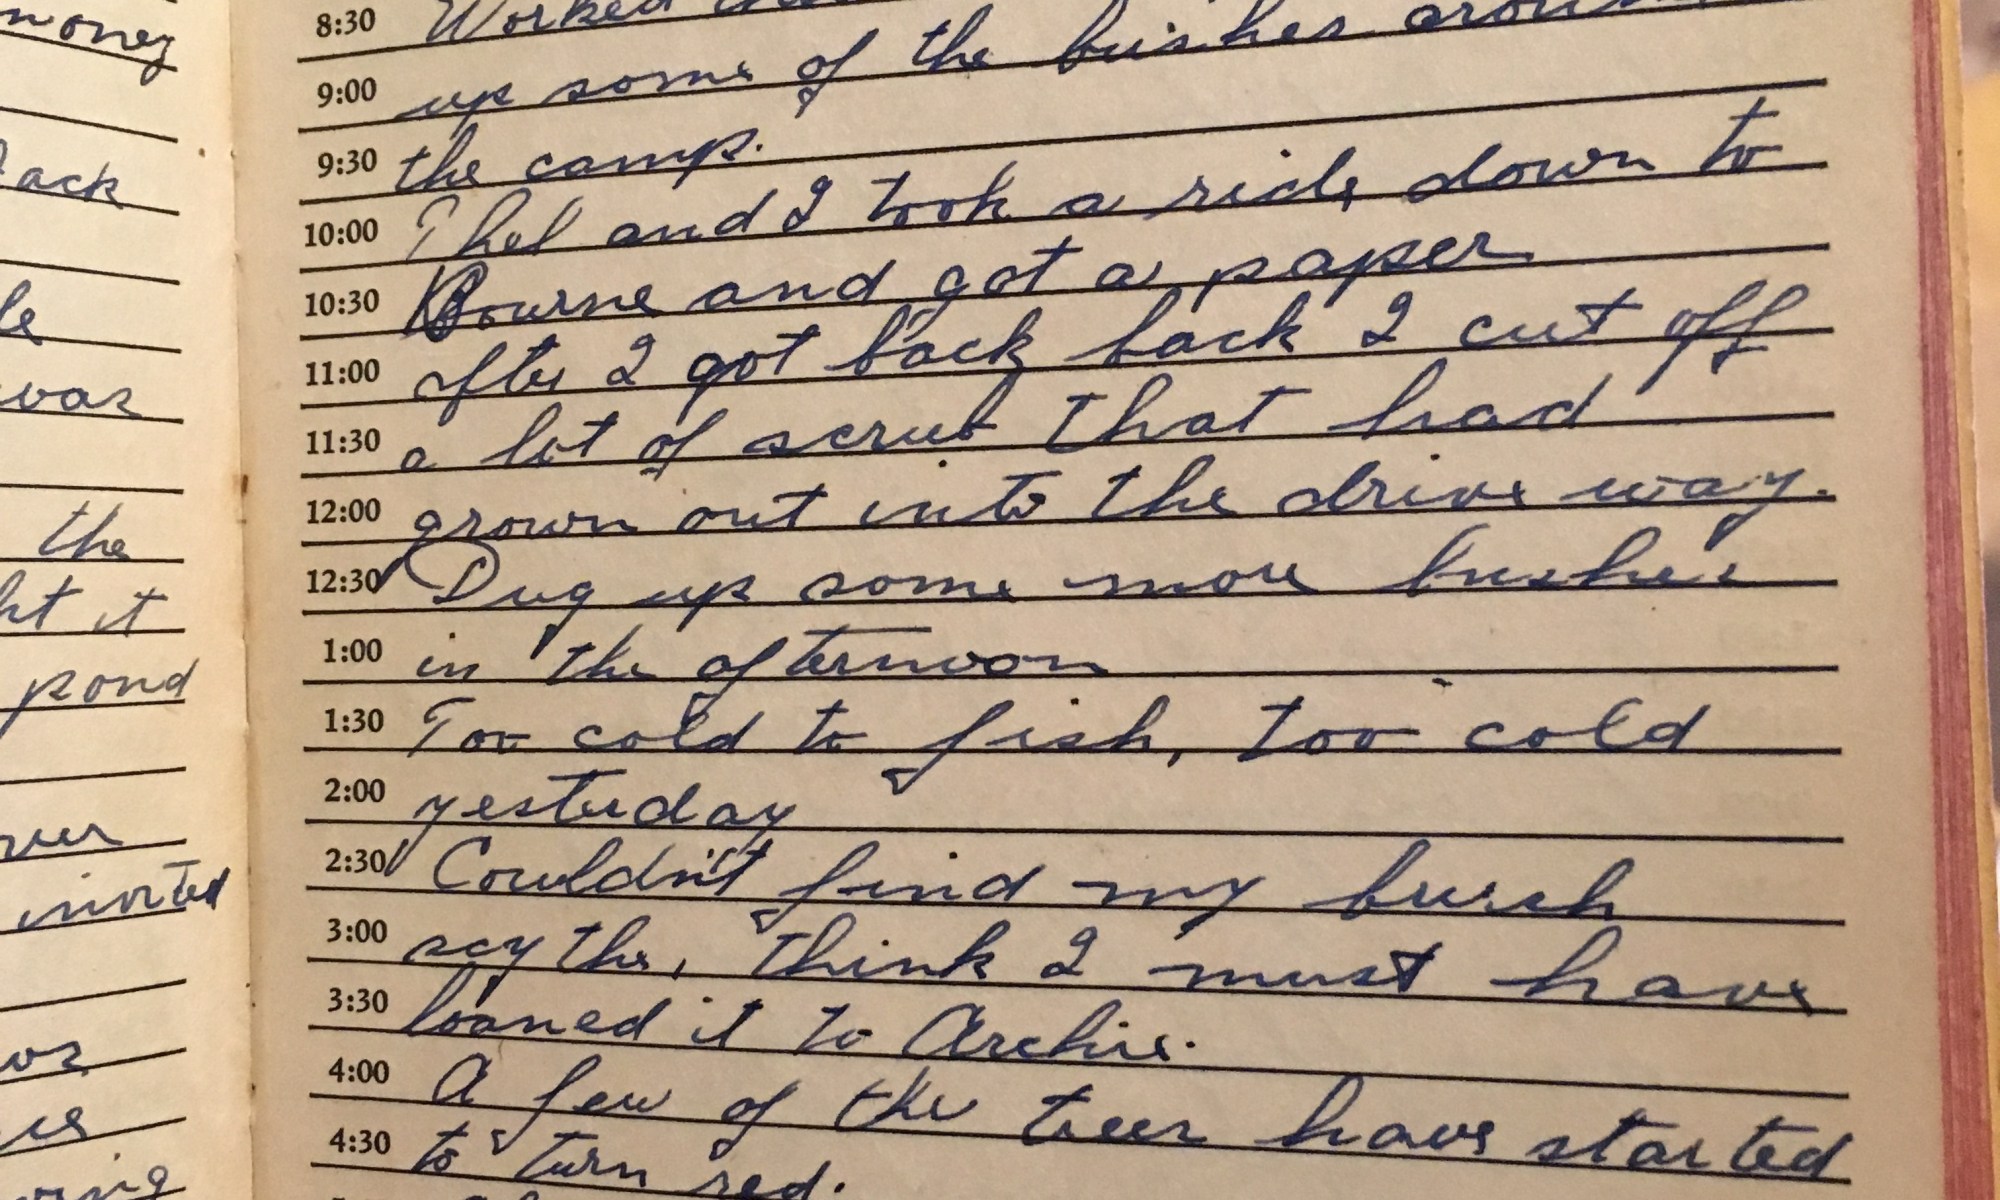 money
ack
le
was
the
ht it
pond
invited
8:30 Worked
9:00 up some of the bushes around
9:30 the camp.
10:00 Thel and I took a ride down to
10:30 Bourne and got a paper
11:00 after I got back back I cut off
11:30 a lot of scrub that had
12:00 grown out into the drive way.
12:30 Dug up some more bushes
1:00 in the afternoon
1:30 Too cold to fish, too cold
2:00 yesterday
2:30 Couldn't find my brush
3:00 scythe, think I must have
3:30 loaned it to Archie.
4:00 A few of the trees have started
4:30 to turn red.